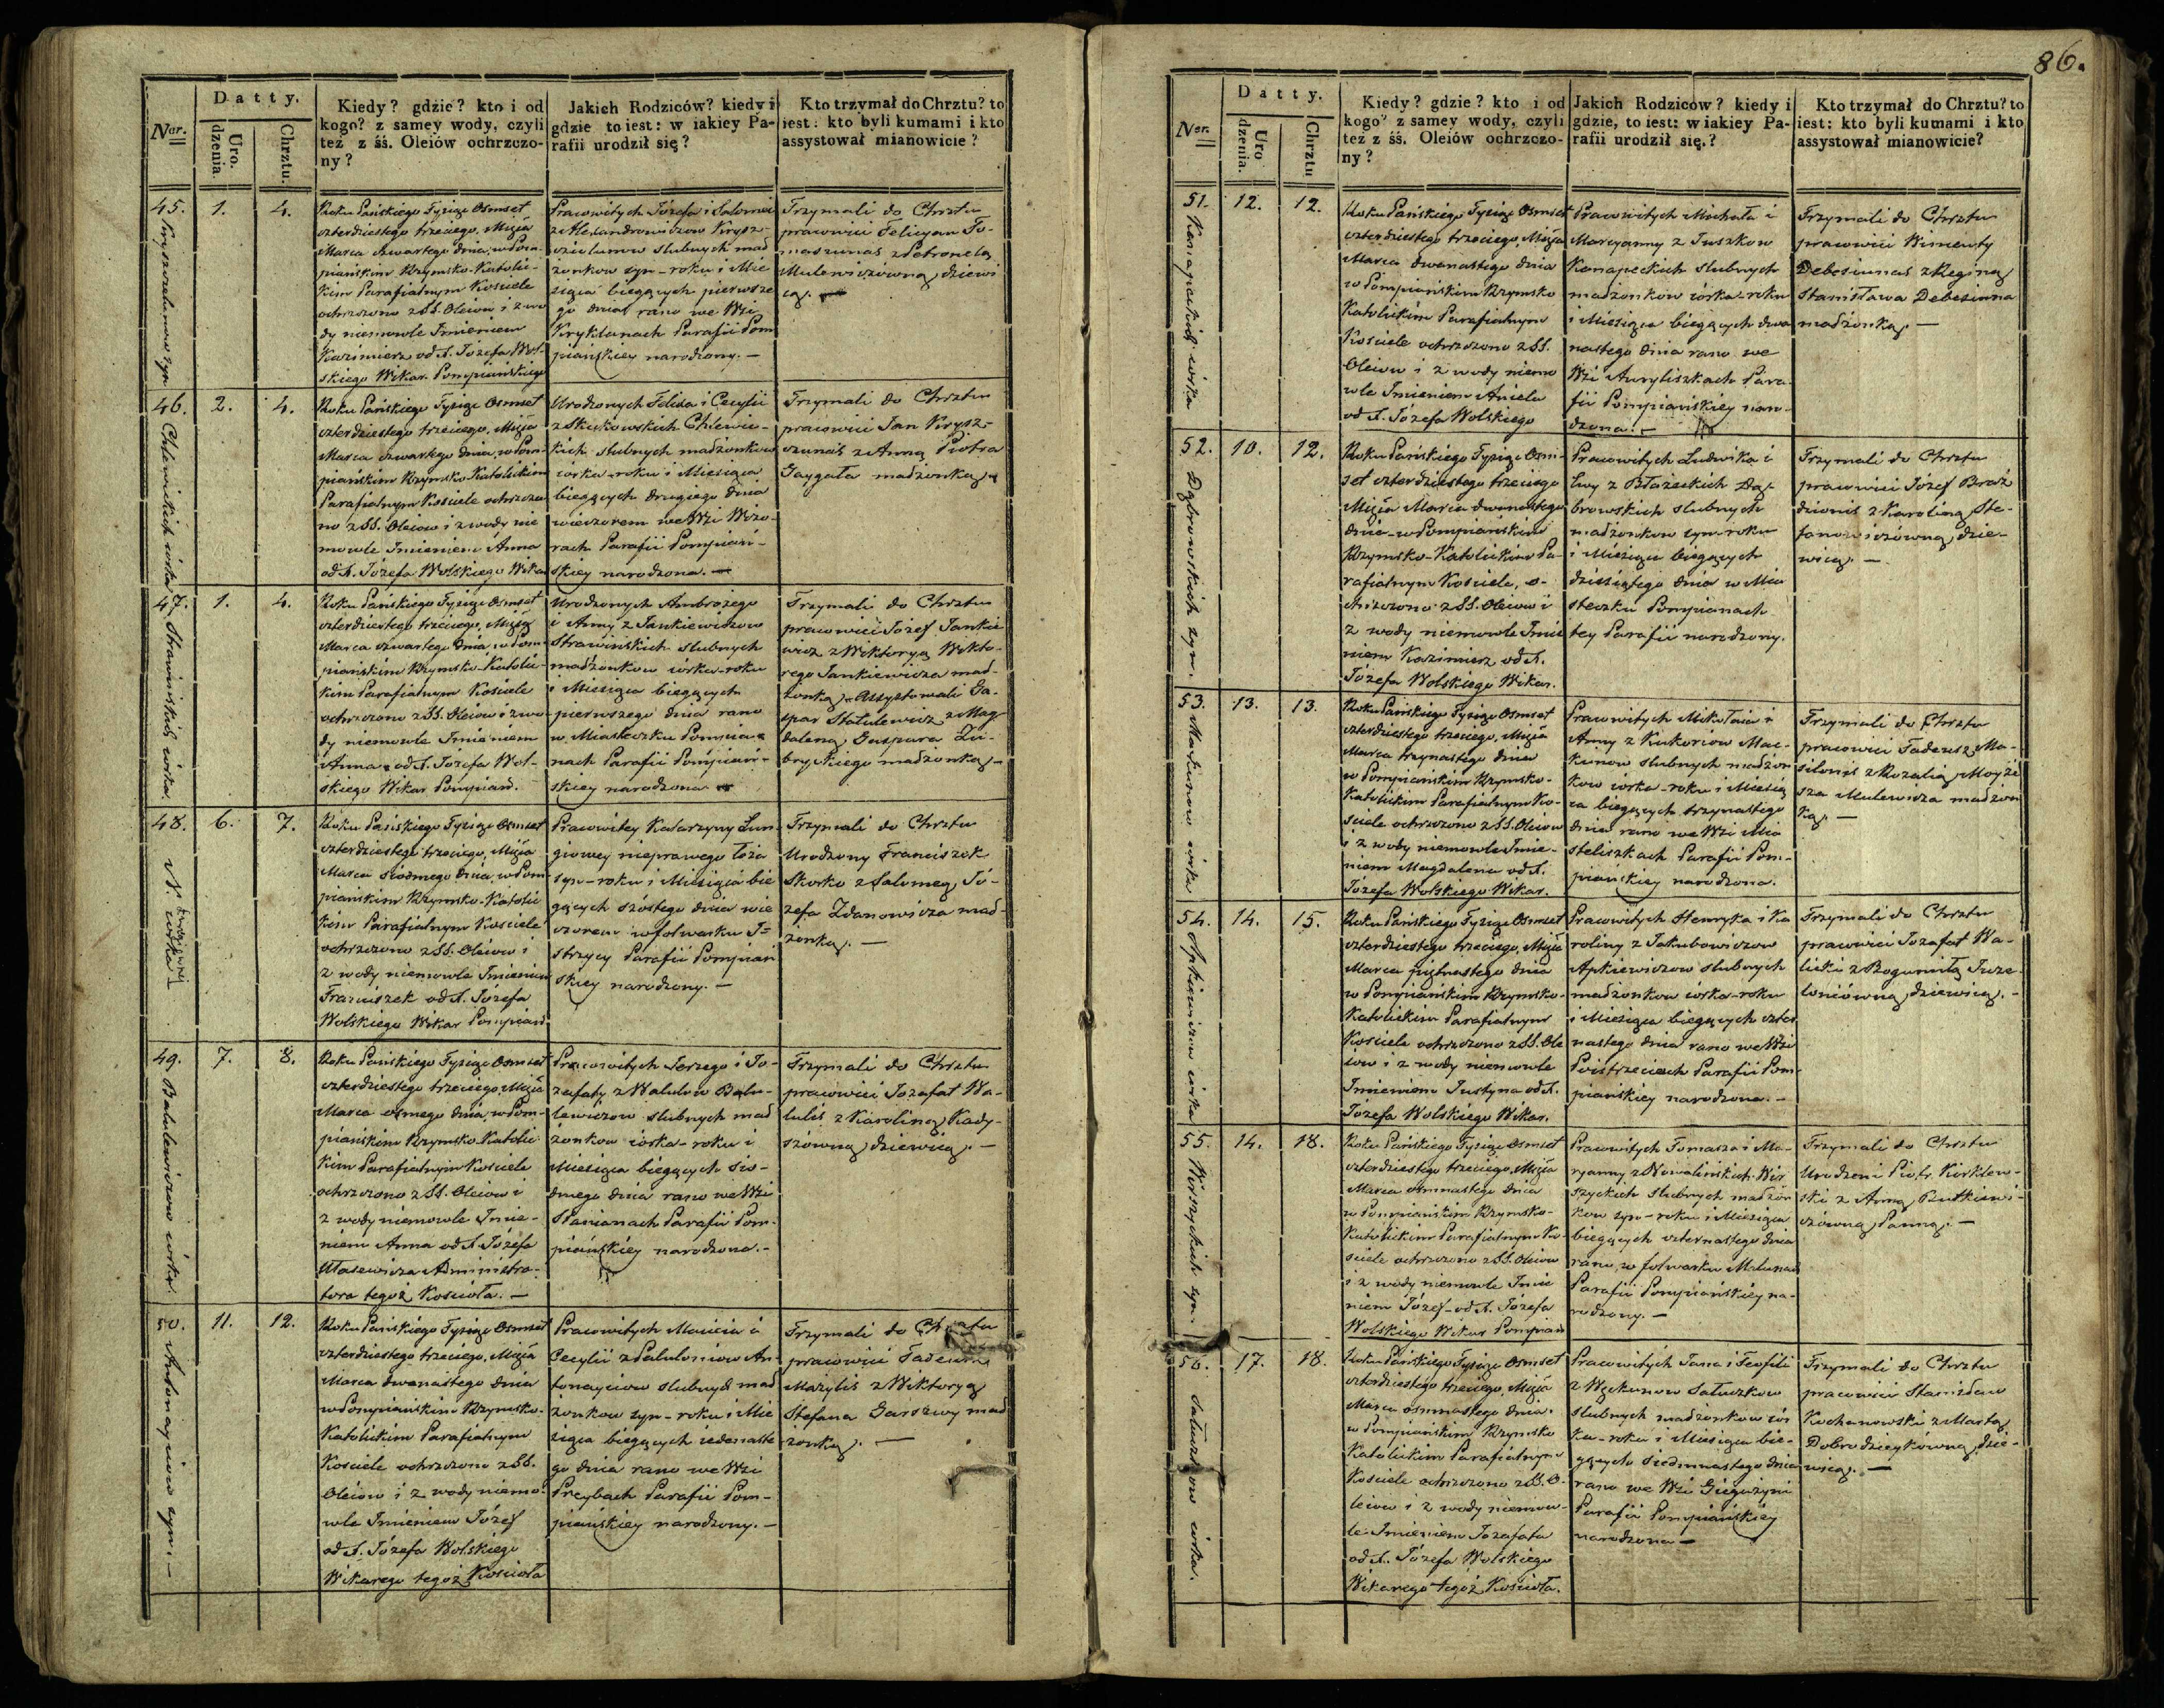 86.
Datty.
Ner.
Uro-
dzenia.
Chrztu.
Kiedy? gdzie? kto i od
kogo? z samey wody, czyli
też z śś. Oleiów ochrzczo-
ny?
Jakich Rodziców? kiedy i
gdzie to iest: w iakiey Pa-
rafii urodził się?
Kto trzymał do Chrztu? to
iest: kto byli kumami i kto
assystował mianowicie?
45.
syn
1.
4.
Roku Pańskiego Tysiąc Osmset
czterdziestego trzeciego, Miąca
Marca czwartego dnia, w Pom-
piańskim Rzymsko-Katolic-
kim Parafialnym Kościele
ochrzczono z SS. Oleiow i z wo
dy niemowle Imieniem
Kazimierz od X. Józefa Wol-
skiego Wikar. Pompiańskiego
Pracowitych Józefa i Salomei
z Alexandrowiczow Krysz-
slubnych mał
żonkow syn - roku i Mie
siąca biegących pierwsze
go dnia rano we Wsi
Kryklanach Parafii Pom
piańskiey narodzony. —
Trzymali do Chrztu
pracowici Felicyan To-
maszunas z Petronelą
Mulewiczówną dziewi
cą.
46.
Chlewickich córka
2.
4.
Roku Pańskiego Tysiąc Osmset
czterdziestego trzeciego, Miąca
Marca czwartego dnia, w Pom-
piańskim Rzymsko Katolickim
Parafialnym Kościele ochrzczo
no z SS. Oleiow i z wody nie
mowle Imieniem Anna
od X. Józefa Wolskiego Wikar
Urodzonych Felixa i Cecylii
z Skukowskich Chlewic-
kich slubnych małżonkow
córka - roku i Miesiąca
biegących drugiego dnia
wieczorem we Wsi Wizo-
rach Parafii Pompiań-
skiey narodzona. —
Trzymali do Chrztu
pracowici Jan Krysz-
czunas z Anną Piotra
Gaygała małżonką
47.
Strawińskich córka.
1.
4.
Roku Pańskiego Tysiąc Osmset
czterdziestego trzeciego, Miąca
Marca czwartego dnia, w Pom
piańskim Rzymsko-Katolic-
kim Parafialnym Kościele
ochrzczono z SS. Oleiow i z wo-
dy niemowle Imieniem
Anna od X. Józefa Wol-
skiego Wikar Pompiań.
Urodzonych Ambrożego
i Anny z Jankiewiczow
Strawińskich slubnych
małżonkow córka - roku
i Miesiąca biegących
pierwszego dnia rano
w Miasteczku Pompia
nach Parafii Pompiań-
skiey narodzona
Trzymali do Chrztu
pracowici Józef Jankie
wicz z Wiktoryą Wikto-
rego Jankiewicza mał-
żonką. Assystowali Ga-
spar Statulewicz z Mag
daleną Gaspara Zu-
bryckiego małżonką
48.
N. córka
6.
7.
Roku Pańskiego Tysiąc Osmset
czterdziestego trzeciego, Miąca
Marca siódmego dnia, w Pom-
piańskim Rzymsko-Katolic
kim Parafialnym Kościele
ochrzczono z SS. Oleiow i
z wody niemowle Imieniem
Franciszek od X. Józefa
Wolskiego Wikar Pompiań
Pracowitey Katarzyny Lun
giowey nieprawego łoża
syn - roku i Miesiąca bie
gących szóstego dnia wie
czorem w folwarku I-
strzycy Parafii Pompiań
skiey narodzony. —
Trzymali do Chrztu
Urodzony Franciszek
Skorko z Salomeą Jó-
zefa Zdanowicza mał-
żonką. —
49.
Balulewiczow córka
7.
8.
Roku Pańskiego Tysiąc Osmset
czterdziestego trzeciego, Miąca
Marca osmego dnia, w Pom-
piańskim Rzymsko-Katolic
kim Parafialnym Kościele
ochrzczono z SS. Oleiow i
z wody niemowle Imie-
niem Anna od X. Józefa
Ułasewicza Administra-
tora tegoż Kościoła. —
Pracowitych Jerzego i Jo-
zafaty z Walulow Balu-
lewiczow slubnych mał
żonkow córka - roku i
Miesiąca biegących sió-
dmego dnia rano we Wsi
Stanianach Parafii Pom-
piańskiey narodzona. -
Trzymali do Chrztu
pracowici Jozafat Wa-
lulis z Karoliną Kady-
szówną dziewicą. —
50.
Antonayciow syn. —
11.
12.
Roku Pańskiego Tysiąc Osmset
czterdziestego trzeciego, Miąca
Marca dwanastego dnia
w Pompiańskim Rzymsko-
Katolickim Parafialnym
Kościele ochrzczono z SS.
Oleiow i z wody niemo-
wle Imieniem Józef
od X. Józefa Wolskiego
Wikarego tegoż Kościoła
Pracowitych Macieia i
Cecylii z Palulonisow An
tonayciow slubnych mał
żonkow syn - roku i Mie
siąca biegących iedenaste
go dnia rano we Wsi
Preybach Parafii Pom-
piańskiey narodzony. —
Trzymali do Chrztu
pracowici Tadeusz
Mazylis z Wiktoryą
Stefana Garszwy mał
żonką. —
Datty.
Ner.
Uro
dzenia.
Chrztu
Kiedy? gdzie? kto i od
kogo? z samey wody, czyli
też z śś. Oleiów ochrzczo-
ny?
Jakich Rodziców? kiedy i
gdzie, to iest: w iakiey Pa-
rafii urodził się.?
Kto trzymał do Chrztu? to
iest: kto byli kumami i kto
assystował mianowicie?
51.
Konapackich córka
12.
12.
Roku Pańskiego Tysiąc Osmset
czterdziestego trzeciego, Miąca
Marca dwanastego dnia
w Pompiańskim Rzymsko
Katolickim Parafialnym
Kościele ochrzczono z SS.
Oleiow i z wody niemo
wle Imieniem Aniela
od X. Józefa Wolskiego
Pracowitych Michała i
Maryanny z Juszkow
Konapackich slubnych
małżonkow córka - roku
i Miesiąca biegących dwa
nastego dnia rano we
Wsi Auryliszkach Para-
fii Pompiańskiey naro-
dzona. —
Trzymali do Chrztu
pracowici Wincenty
Debesiunas z Reginą
Stanisława Debesiuna
małżonką. —
52.
Dąbrowskich syn.
10.
12.
Roku Pańskiego Tysiąc Osm-
set czterdziestego trzeciego
Miąca Marca dwunastego
dnia - w Pompiańskim
Rzymsko-Katolickim Pa-
rafialnym Kościele, o-
chrzczono z SS. Oleiow i
z wody niemowle Imie
niem Kazimierz od X.
Józefa Wolskiego Wikar.
Pracowitych Ludwika i
Ewy z Błażeckich Dą-
browskich slubnych
małżonkow syn - roku
i Miesiąca biegących
dziesiątego dnia w Mia
steczku Pompianach
tey Parafii narodzony.
Trzymali do Chrztu
pracowici Józef Braź
dzionis z Karoliną Ste-
fanowiczówną dzie-
wicą. —
53.
Maciunow córka
13.
13.
Roku Pańskiego Tysiąc Osmset
czterdziestego trzeciego, Miąca
Marca trzynastego dnia
w Pompiańskim Rzymsko-
Katolickim Parafialnym Ko-
ściele ochrzczono z SS. Oleiow
i z wody niemowle Imie-
niem Magdalena od X.
Józefa Wolskiego Wikar.
Pracowitych Mikołaia i
Anny z Kukorisow Mac-
kunow slubnych małżon
kow córka - roku i Miesią
ca biegących trzynastego
dnia rano we Wsi Mia
steliszkach Parafii Pom-
piańskiey narodzona.
Trzymali do Chrztu
pracowici Tadeusz Ma-
silonis z Rozalią Moyże
sza Mulewicza małżon
ką. —
54.
Apkiewiczow córka
14.
15.
Roku Pańskiego Tysiąc Osmset
czterdziestego trzeciego, Miąca
Marca piętnastego dnia
w Pompiańskim Rzymsko-
Katolickim Parafialnym
Kościele ochrzczono z SS. Ole
iow i z wody niemowle
Imieniem Justyna od X.
Józefa Wolskiego Wikar.
Pracowitych Henryka i Ka
roliny z Jakubowiczow
Apkiewiczow slubnych
małżonkow córka - roku
i Miesiąca biegących czter
nastego dnia rano we Wsi
Poistrzeciach Parafii Pom-
piańskiey narodzona. —
Trzymali do Chrztu
pracowici Jozafat Wa-
licki z Bogumiłą Juze-
loniówną dziewicą. -
55.
Wirszyckich syn.
14.
18.
Roku Pańskiego Tysiąc Osmset
czterdziestego trzeciego, Miąca
Marca osmnastego dnia
w Pompiańskim Rzymsko-
Katolickim Parafialnym Ko-
ściele ochrzczono z SS. Oleiow
i z wody niemowle Imie
niem Józef - od X. Józefa
Wolskiego Wikar Pompiań
Pracowitych Tomasza i Ma-
ryanny z Nowalińskich Wir
szyckich slubnych małżon
kow syn - roku i Miesiąca
biegących czternastego dnia
rano w folwarku Malunach
Parafii Pompiańskiey na-
rodzony. —
Trzymali do Chrztu
Urodzeni Piotr Kirklew-
ski z Anną Rutkiewi-
czówną Panną. —
56.
Satuszkow córka.
17.
18.
Roku Pańskiego Tysiąc Osmset
czterdziestego trzeciego, Miąca
Marca osmnastego dnia.
w Pompiańskim Rzymsko
Katolickim Parafialnym
Kościele ochrzczono z SS. O-
leiow i z wody niemow-
le Imieniem Jozafata
od X. Józefa Wolskiego
Wikarego tegoż Kościoła.
Pracowitych Jana i Teofili
z Wękunow Satuszkow
slubnych małżonkow cór
ka - roku i Miesiąca bie-
gących siedmnastego dnia
rano we Wsi Gieguzyni
Parafii Pompiańskiey
narodzona —
Trzymali do Chrztu
pracowici Stanisław
Kochanowski z Martą
Dobrodzieykówną dzie-
wicą. —